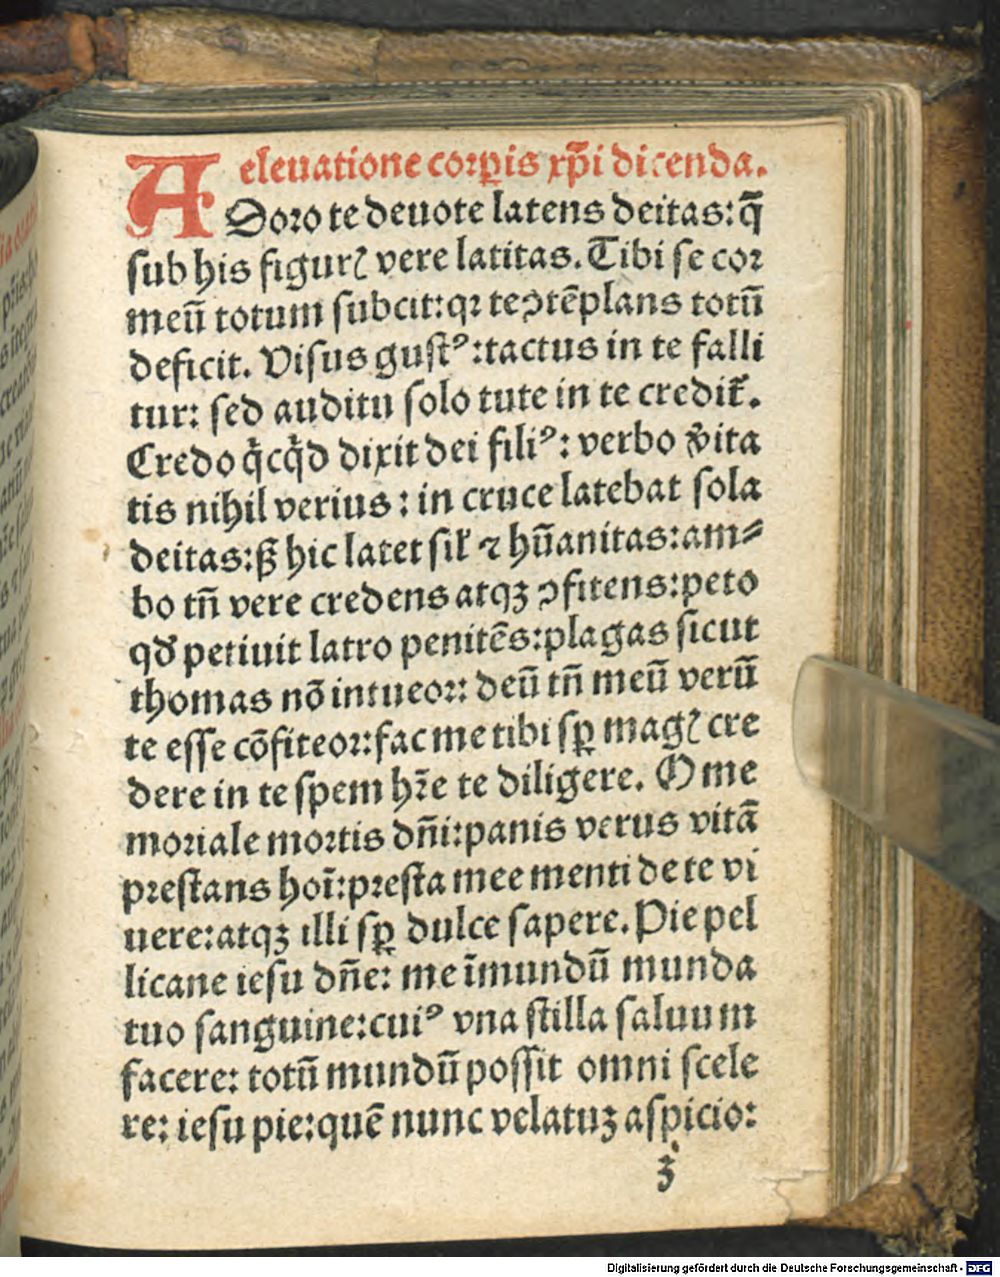 eleuatione corꝑis xp̄i dicenda.
ADoro te deuote latens deitas: q̄
sub his figurꝭ vere latitas. Tibi se cor
meū totum subcit: qꝛ te ↄtēplans totū
deficit. Visus gustꝰ: tactus in te falli
tur: sed auditu solo tute in te credit᷑.
Credo qͥcqͥd dixit dei filiꝰ: verbo v̄ita
tis nihil verius: in cruce latebat sola
deitas: ß hic latet sił ⁊ hūanitas: am⸗
bo tn̄ vere credens atqꝫ ↄfitens: peto
qđ petiuit latro penitēs: plagas sicut
thomas nō intueor: deū tn̄ meū verū
te esse cōfiteor: fac me tibi sꝑ magꝭ cre
dere in te spem hr̄e te diligere. O me
moriale mortis dn̄i: panis verus vitā
prestans hoī: presta mee menti de te vi
uere: atqꝫ illi sꝑ dulce sapere. Pie pel
licane iesu dn̄e: me īmundū munda
tuo sanguine: cuiꝰ vna stilla saluum
facere: totū mundū possit omni scele
re: iesu pie: quē nunc velatuꝫ aspicio:
ꝫ
Digitalisierung gefördert durch die Deutsche Forschungsgemeinschaft - DFG